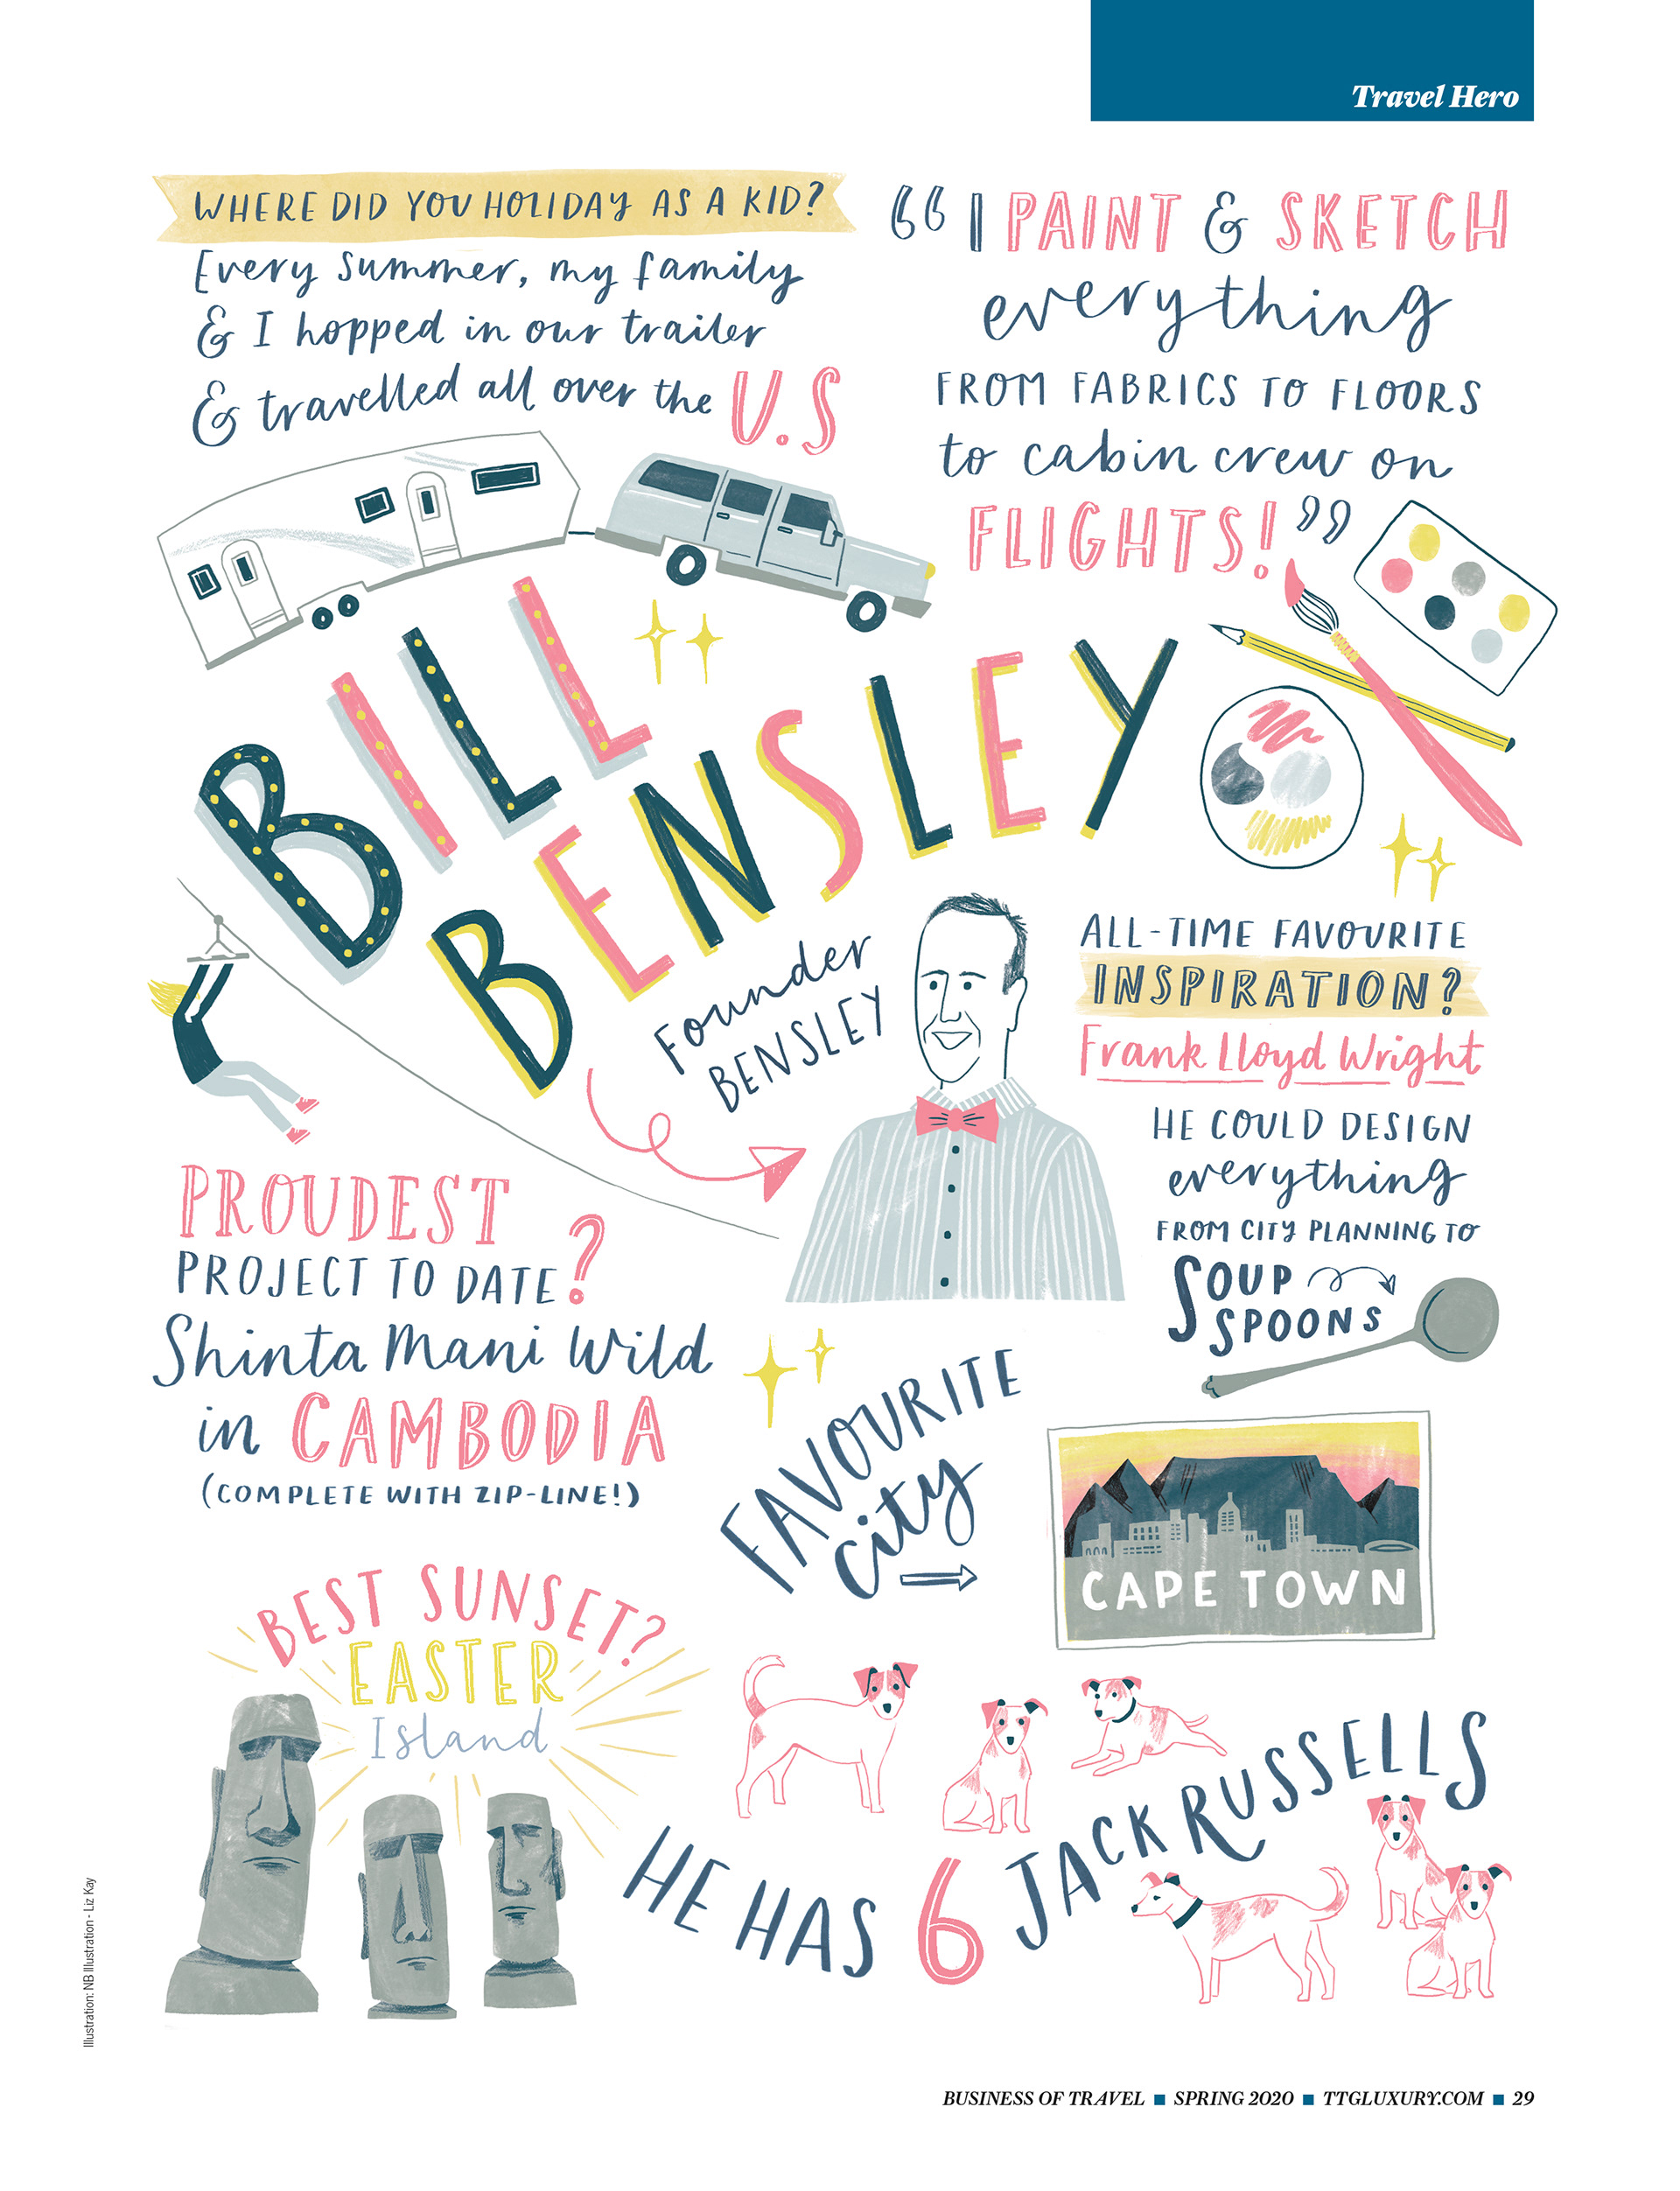 Travel Hero
WHERE DID YOU HOLIDAY AS A KID?
Every summer, my family
& I hopped in our trailer
& travelled all over the U.S
“I PAINT & SKETCH
everything
FROM FABRICS TO FLOORS
to cabin crew on
FLIGHTS!”
BILL
BENSLEY
Founder
BENSLEY
ALL-TIME FAVOURITE
INSPIRATION?
Frank Lloyd Wright
HE COULD DESIGN
everything
FROM CITY PLANNING TO
SOUP
SPOONS
PROUDEST
PROJECT TO DATE?
Shinta Mani Wild
in CAMBODIA
(COMPLETE WITH ZIP-LINE!)
FAVOURITE
city
CAPE TOWN
BEST SUNSET?
EASTER
Island
HE HAS 6 JACK RUSSELLS
Illustration: NB Illustration - Liz Kay
BUSINESS OF TRAVEL ■ SPRING 2020 ■ TTGLUXURY.COM ■ 29